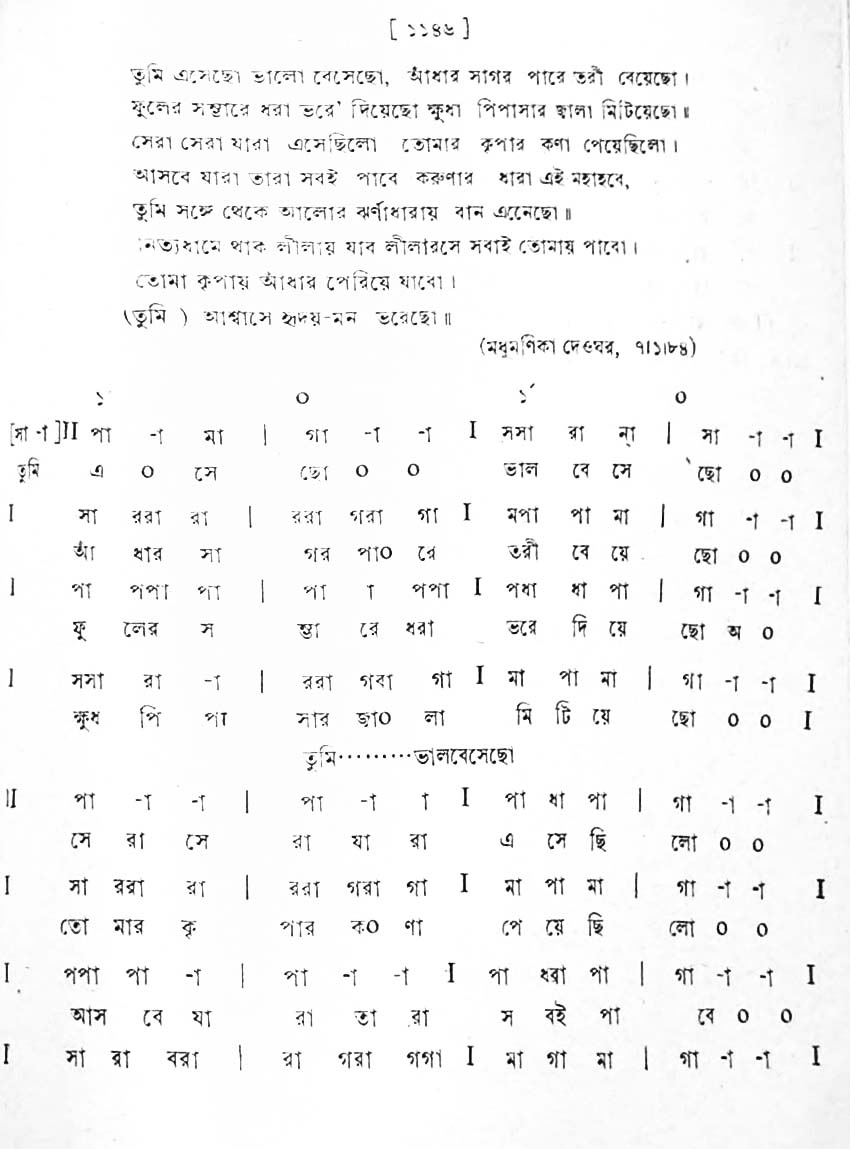 [ ১১৪৬ ]
তুমি এসেছো ভালো বেসেছো, আঁধার সাগর পারে তরী বেয়েছো।
ফুলের সম্ভারে ধরা ভরে' দিয়েছো ক্ষুধা পিপাসার জ্বালা মিটিয়েছো॥
সেরা সেরা যারা এসেছিলো তোমার কৃপার কণা পেয়েছিলো।
আসবে যারা তারা সবই পাবে করুণার ধারা এই মহাহবে,
তুমি সঙ্গে থেকে আলোর ঝর্ণাধারায় বান এনেছো॥
নিত্যধামে থাক লীলায় যাব লীলারসে সবাই তোমায় পাবো।
তোমা কৃপায় আঁধার পেরিয়ে যাবো।
(তুমি ) আশ্বাসে হৃদয়-মন ভরেছো॥
(মধুমণিকা দেওঘর, ৭।১।৮৪)
১ ০ ১´ ০
[সা -া]II পা -া মা | গা -া -া I সসা রা ন্া | সা -া -া I
তুমি এ ০ সে ছো ০ ০ ভাল বে সে ছো ০ ০
I সা ররা রা | ররা গরা গা I মপা পা মা | গা -া -া I
আঁ ধার সা গর পা০ রে তরী বে য়ে ছো ০ ০
I পা পপা পা | পা া পপা I পধা ধা পা | গা -া -া I
ফু লের স ম্ভা রে ধরা ভরে দি য়ে ছো অ ০
I সসা রা -া | ররা গবা গা I মা পা মা | গা -া -া I
ক্ষুধ পি পা সার জ্বা০ লা মি টি য়ে ছো ০ ০ I
তুমি·········ভালবেসেছো
II পা -া -া | পা -া া I পা ধা পা | গা -া -া I
সে রা সে রা যা রা এ সে ছি লো ০ ০
I সা ররা রা | ররা গরা গা I মা পা মা | গা -া -া I
তো মার কৃ পার ক০ ণা পে য়ে ছি লো ০ ০
I পপা পা -া | পা -া -া I পা ধরা পা | গা -া -া I
আস বে যা রা তা রা স বই পা বে ০ ০
I সা রা বরা | রা গরা গগা I মা গা মা | গা -া -া I